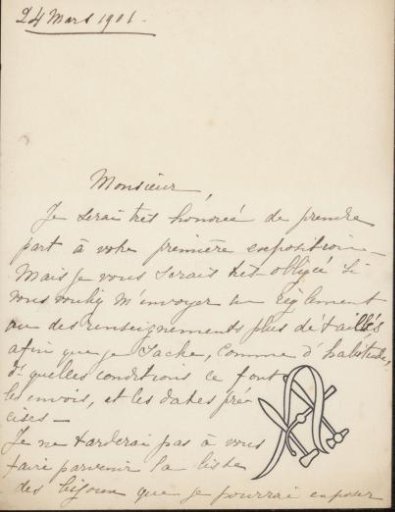 24 Mars 1906.
Monsieur,
Je serai très honorée de prendre
part à votre première exposition —
Mais je vous serais très obligée si
vous vouliez m'envoyer un règlement
ou des renseignements plus détaillés
afin que je sache, comme d'habitude,
à quelles conditions se font
les envois, et les dates pré
cises —
Je ne tarderai pas à vous
faire parvenir la liste
des bijoux que je pourrai exposer